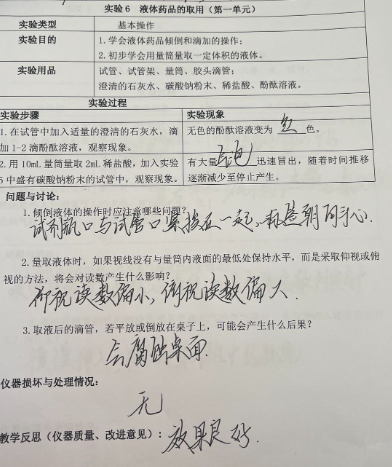 实验6 液体药品的取用（第一单元）
实验类型 基本操作
实验目的 1.学会液体药品倾倒和滴加的操作；
2.初步学会用量筒量取一定体积的液体。
实验用品 试管、试管架、量筒、胶头滴管；
澄清的石灰水、碳酸钠粉末、稀盐酸、酚酞溶液。
实验过程
实验步骤 实验现象
1.在试管中加入适量的澄清的石灰水，滴 无色的酚酞溶液变为 红 色。
加1-2滴酚酞溶液，观察现象。
2.用10mL量筒量取2mL稀盐酸，加入实验 有大量 气泡 迅速冒出，随着时间推移
5中盛有碳酸钠粉末的试管中，观察现象。 逐渐减少至停止产生。
问题与讨论：
1.倾倒液体的操作时应注意哪些问题？
试剂瓶口与试管口紧挨在一起，标签朝向手心.
2.量取液体时，如果视线没有与量筒内液面的最低处保持水平，而是采取仰视或俯
视的方法，将会对读数产生什么影响？
仰视读数偏小，俯视读数偏大.
3.取液后的滴管，若平放或倒放在桌子上，可能会产生什么后果？
会腐蚀桌面.
仪器损坏与处理情况：
无
教学反思（仪器质量、改进意见）：效果良好.